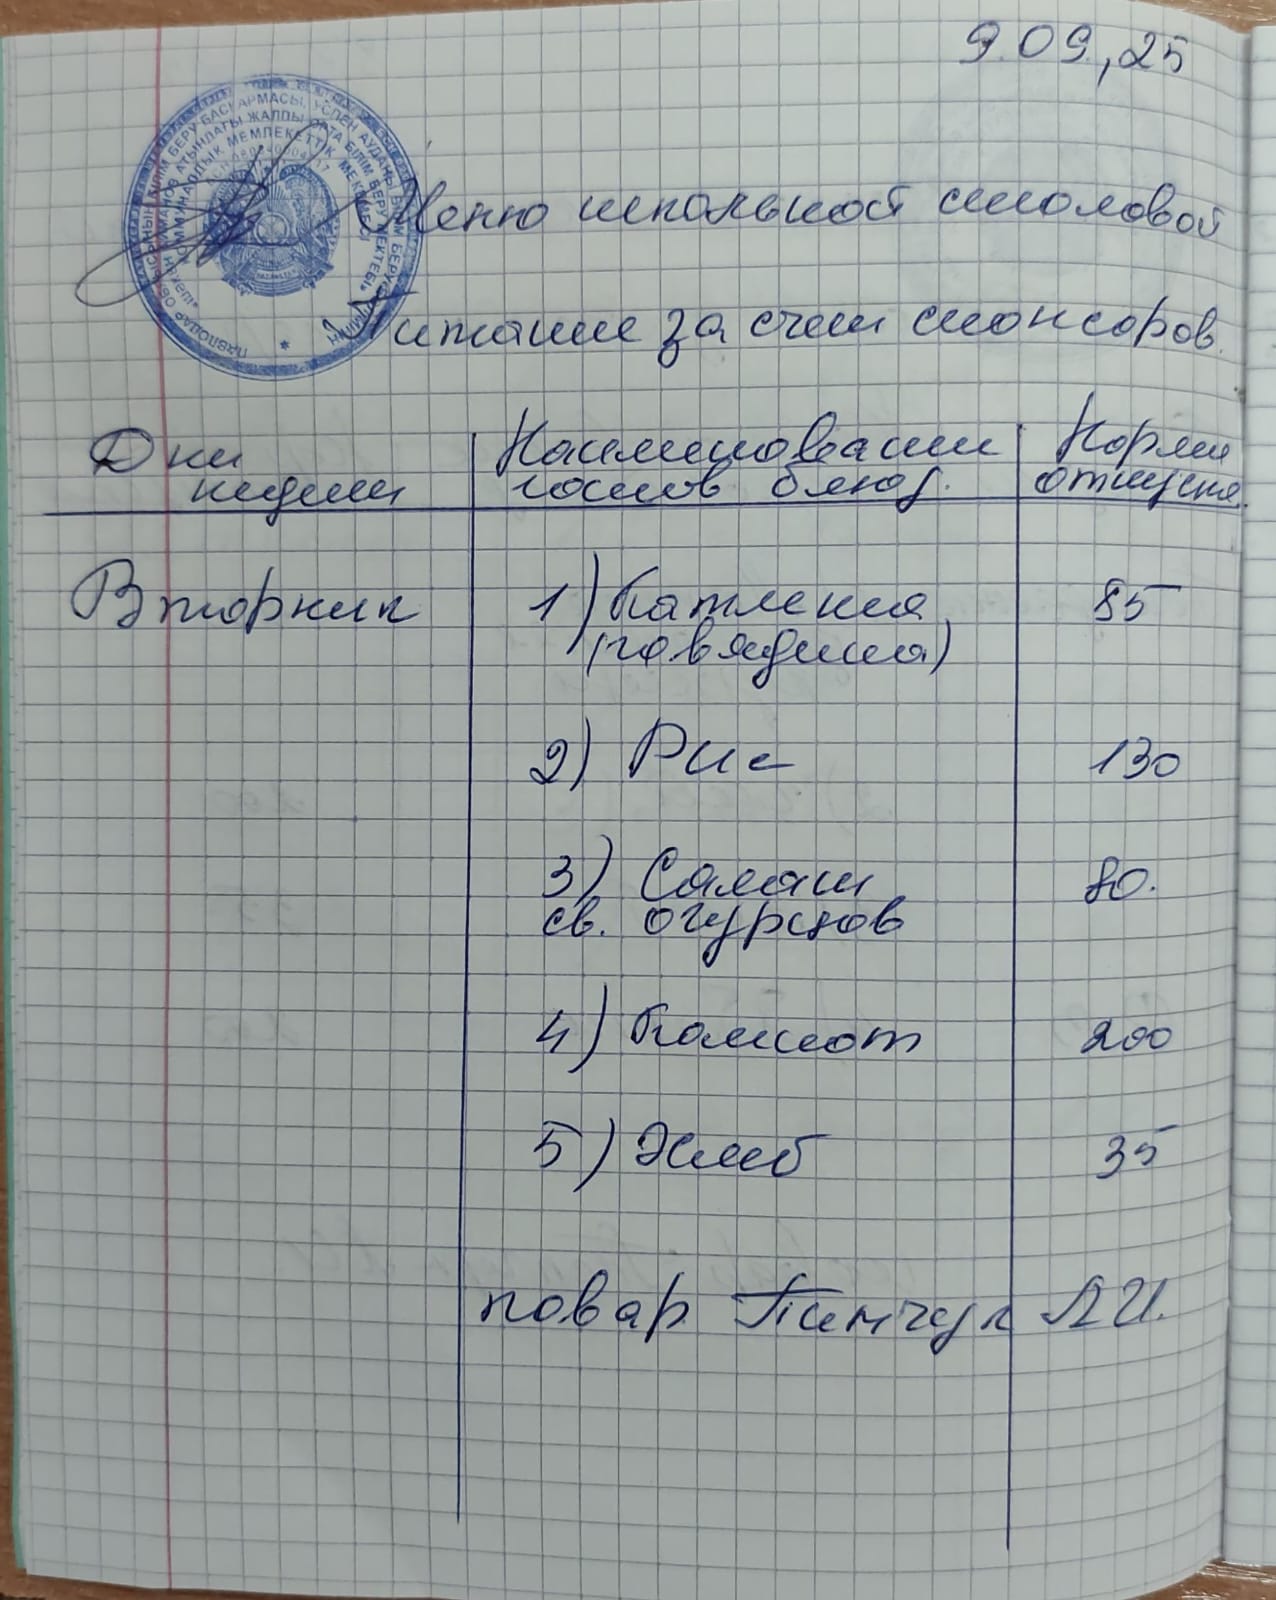 9.09,25
Меню школьной столовой
Питание за счет спонсоров.
Дни недели
Наименование готов блюд.
Норма отпуска.
Вторник
1) Катлета 85
(говядина)
2) Рис 130
3) Салат 80.
св. огурцов
4) Компот 200
5) Хлеб 35
повар Тимчук Л И.
ПАВЛОДАР ОБЛЫСЫНЫҢ БІЛІМ БЕРУ БАСҚАРМАСЫ, УСПЕН АУДАНЫ БІЛІМ БЕРУ
АТЫНДАҒЫ ЖАЛПЫ ОРТА БІЛІМ БЕРУ МЕКТЕБІ»
КОММУНАЛДЫҚ МЕМЛЕКЕТТІК МЕКЕМЕСІ